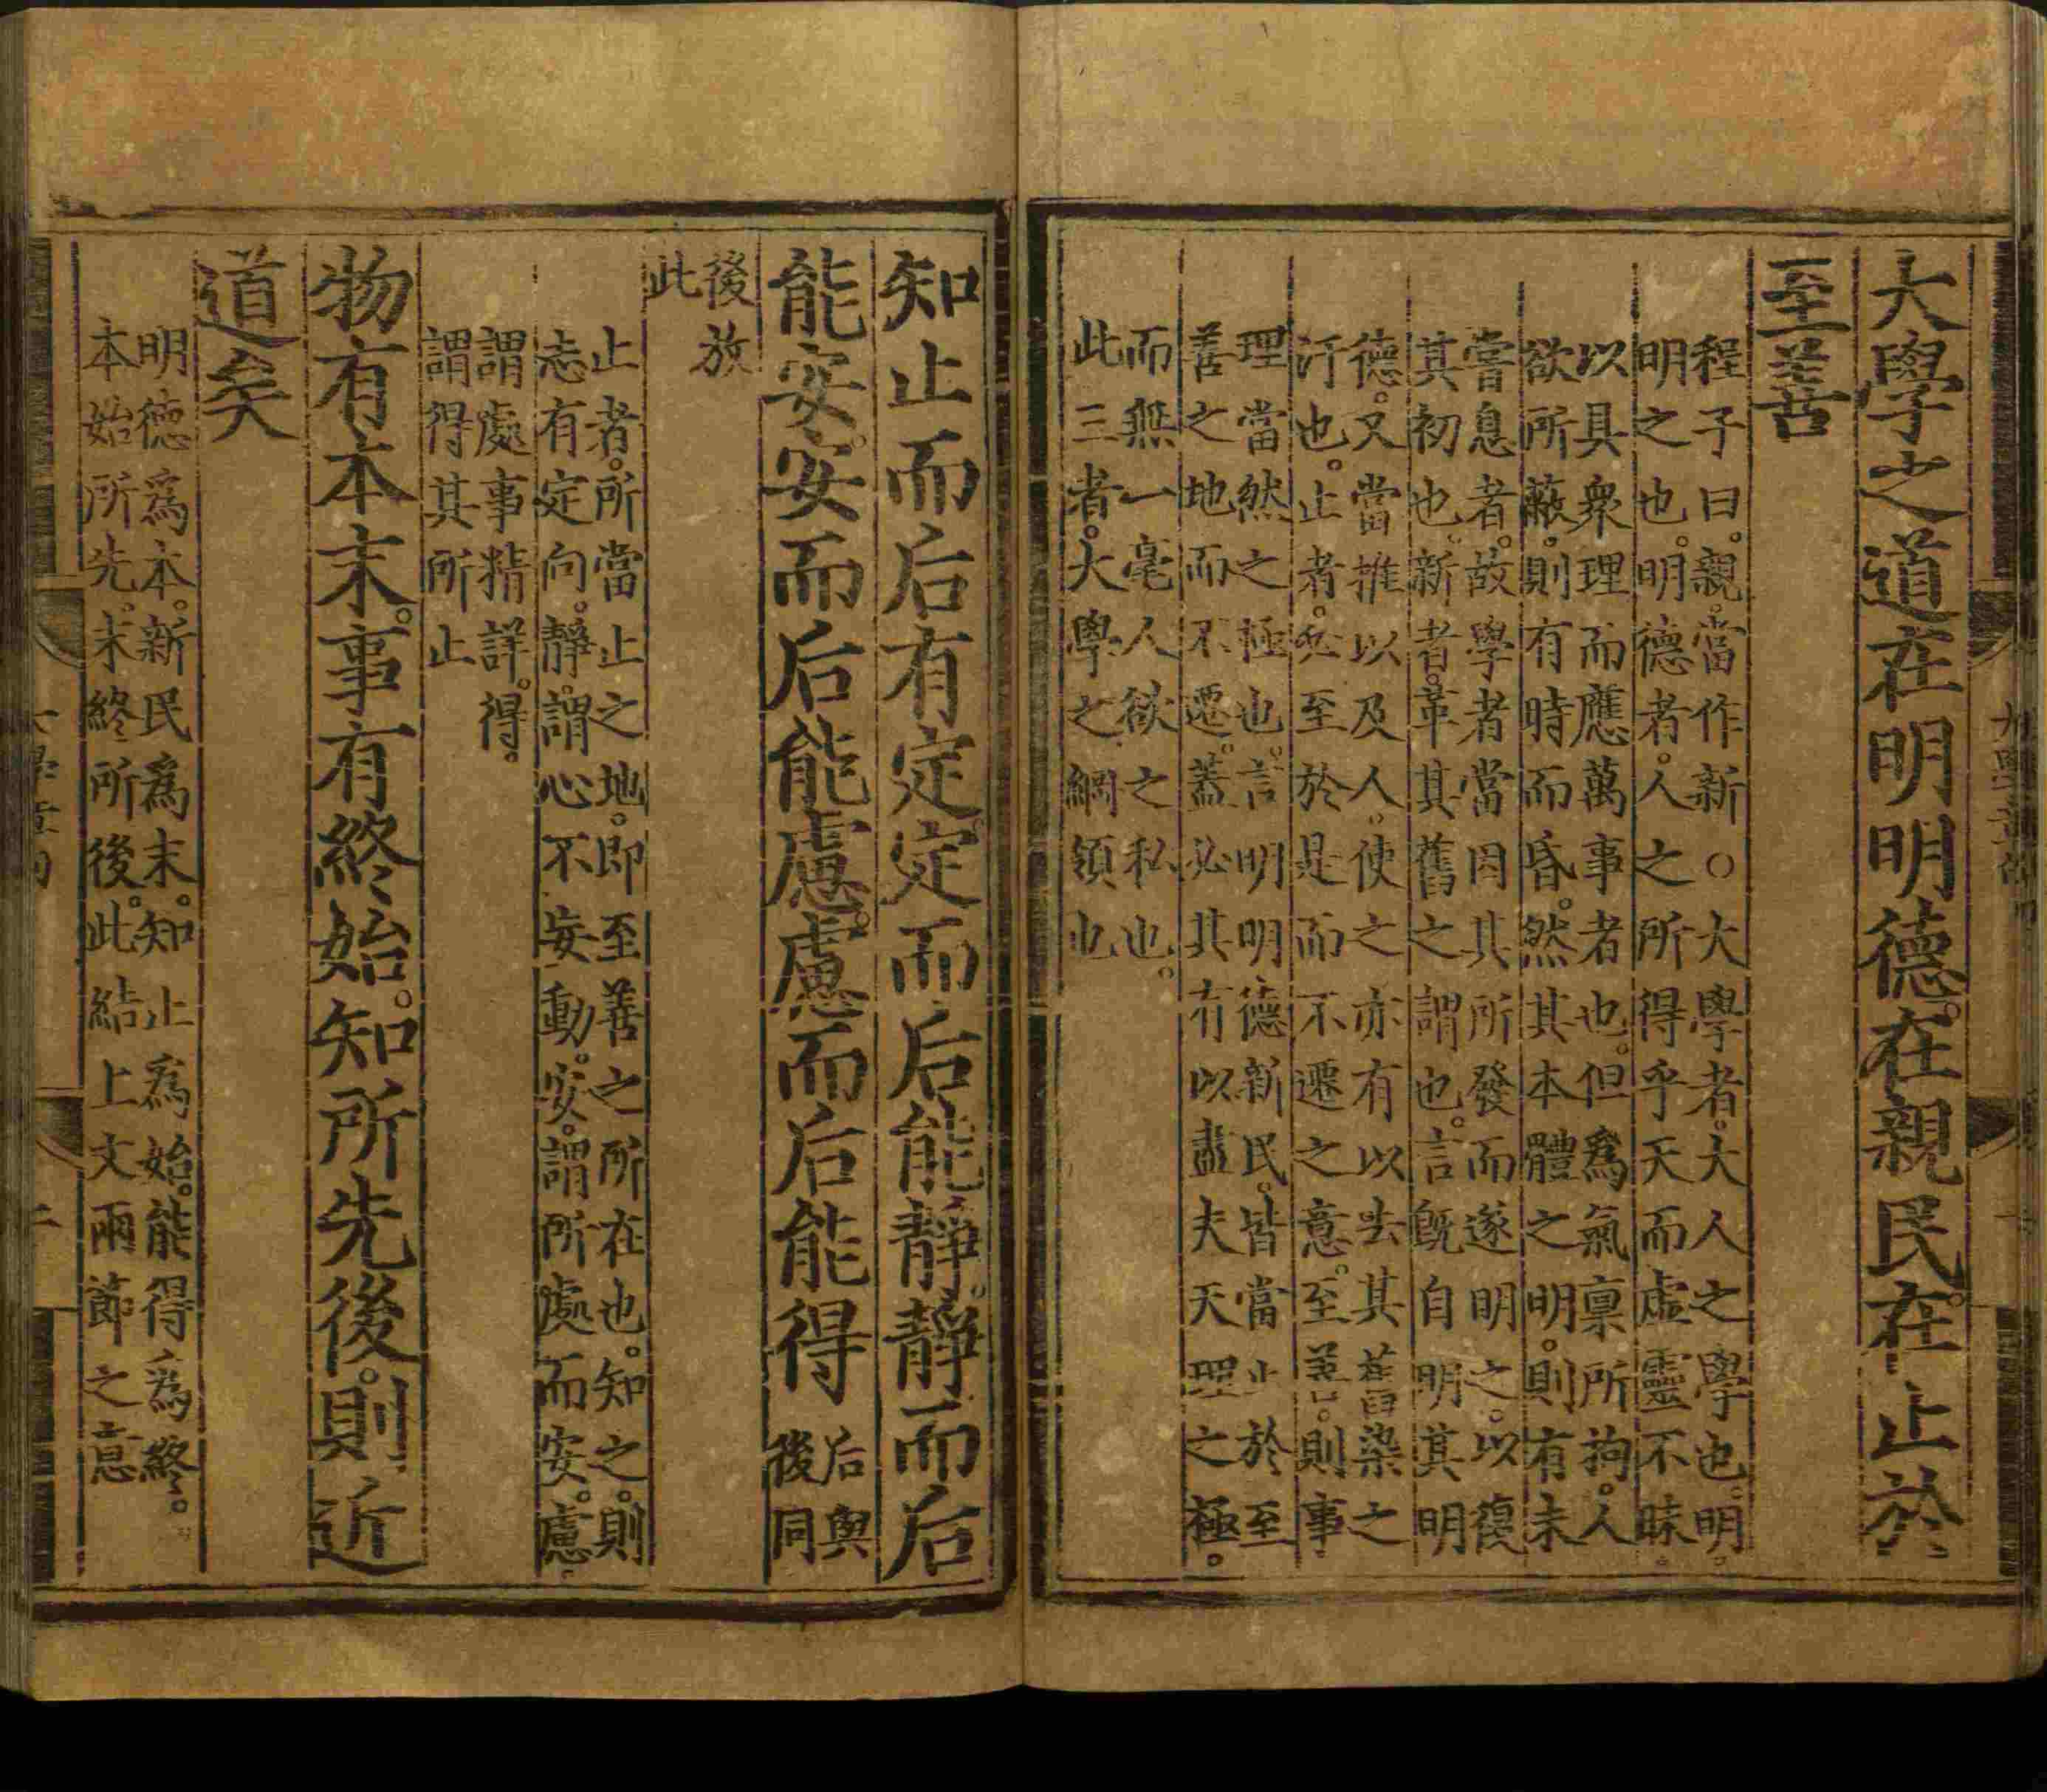 大學之道在明明德。在親民。在止於
至善
程子曰。親。當作新○大學者。大人之學也。明。
明之也。明德者。人之所得乎天而虛靈不昧。
以具衆理而應萬事者也。但爲氣稟所拘。人
欲所蔽。則有時而昏。然其本體之明。則有未
嘗息者。故學者當因其所發而遂明之。以復
其初也。新者。革其舊之謂也。言旣自明其明
德。又當推以及人。使之亦有以去其舊染之
汙也。止者。必至於是而不遷之意。至善。則事
理當然之極也。言明明德新民。皆當止於至
善之地而不遷。蓋必其有以盡夫天理之極。
而無一毫人欲之私也。
此三者。大學之綱領也
知止而后有定。定而后能靜。靜而后
能安。安而后能慮。慮而后能得
后與
後同
後放
此
止者。所當止之地。即至善之所在也。知之。則
志有定向。靜。謂心不妄動。安。謂所處而安。慮。
謂處事精詳。得。
謂得其所止
物有本末。事有終始。知所先後。則近
道矣
明德爲本。新民爲末。知止爲始。能得爲終。
本始所先。末終所後。此結上文兩節之意